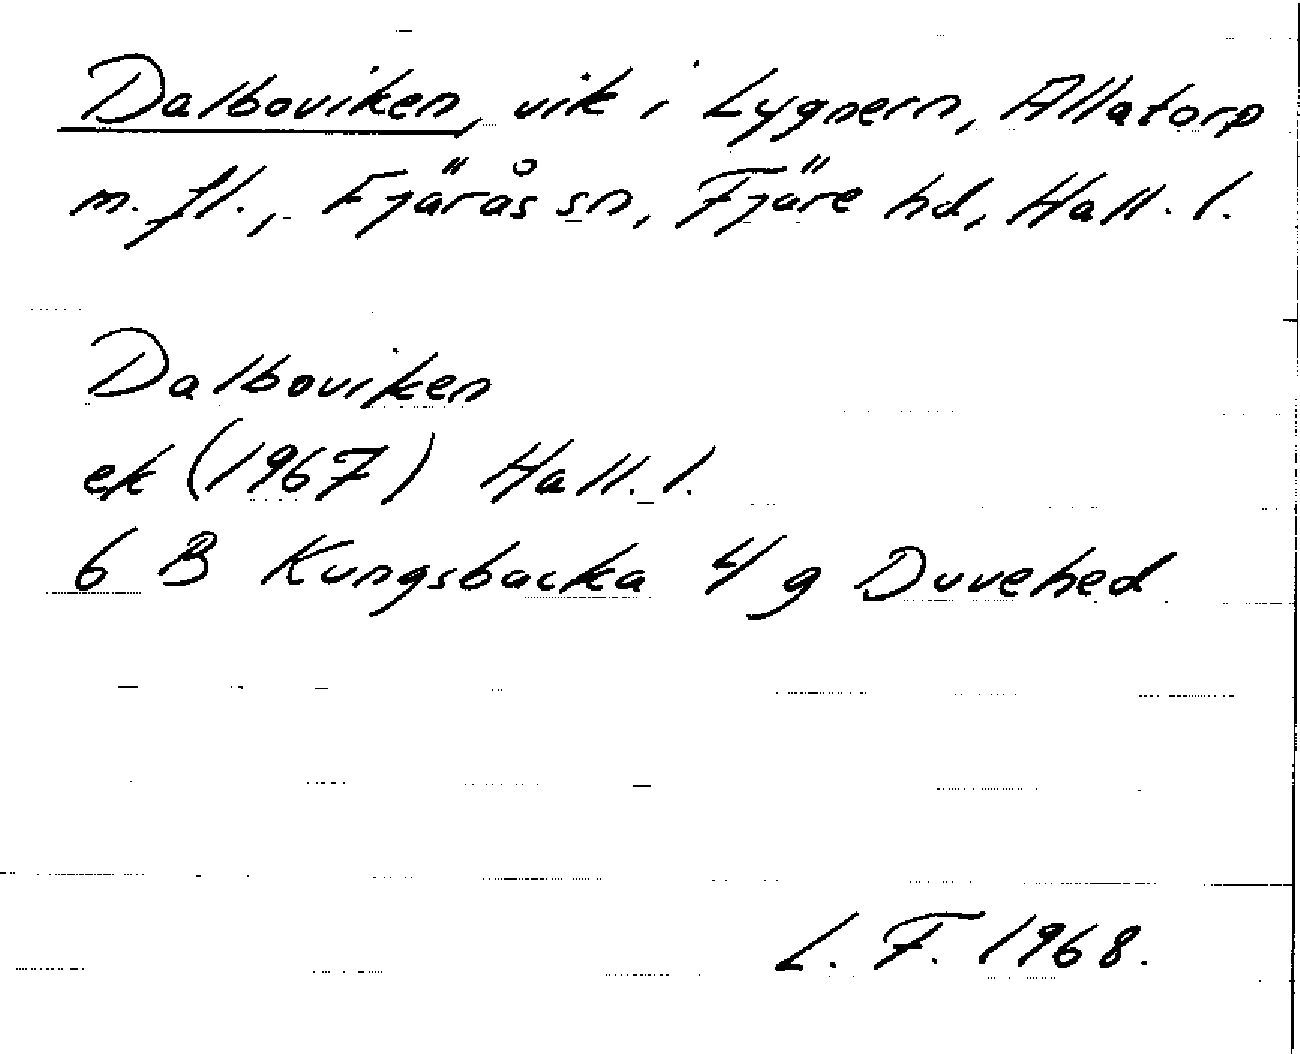 Dalboviken, vik i Lygnern, Allatorp
m. fl., Fjärås sn, Fjäre hd, Hall. l.
Dalboviken
ek (1967) Hall. l.
6 B Kungsbacka 4 g Duvehed
L. F. 1968.